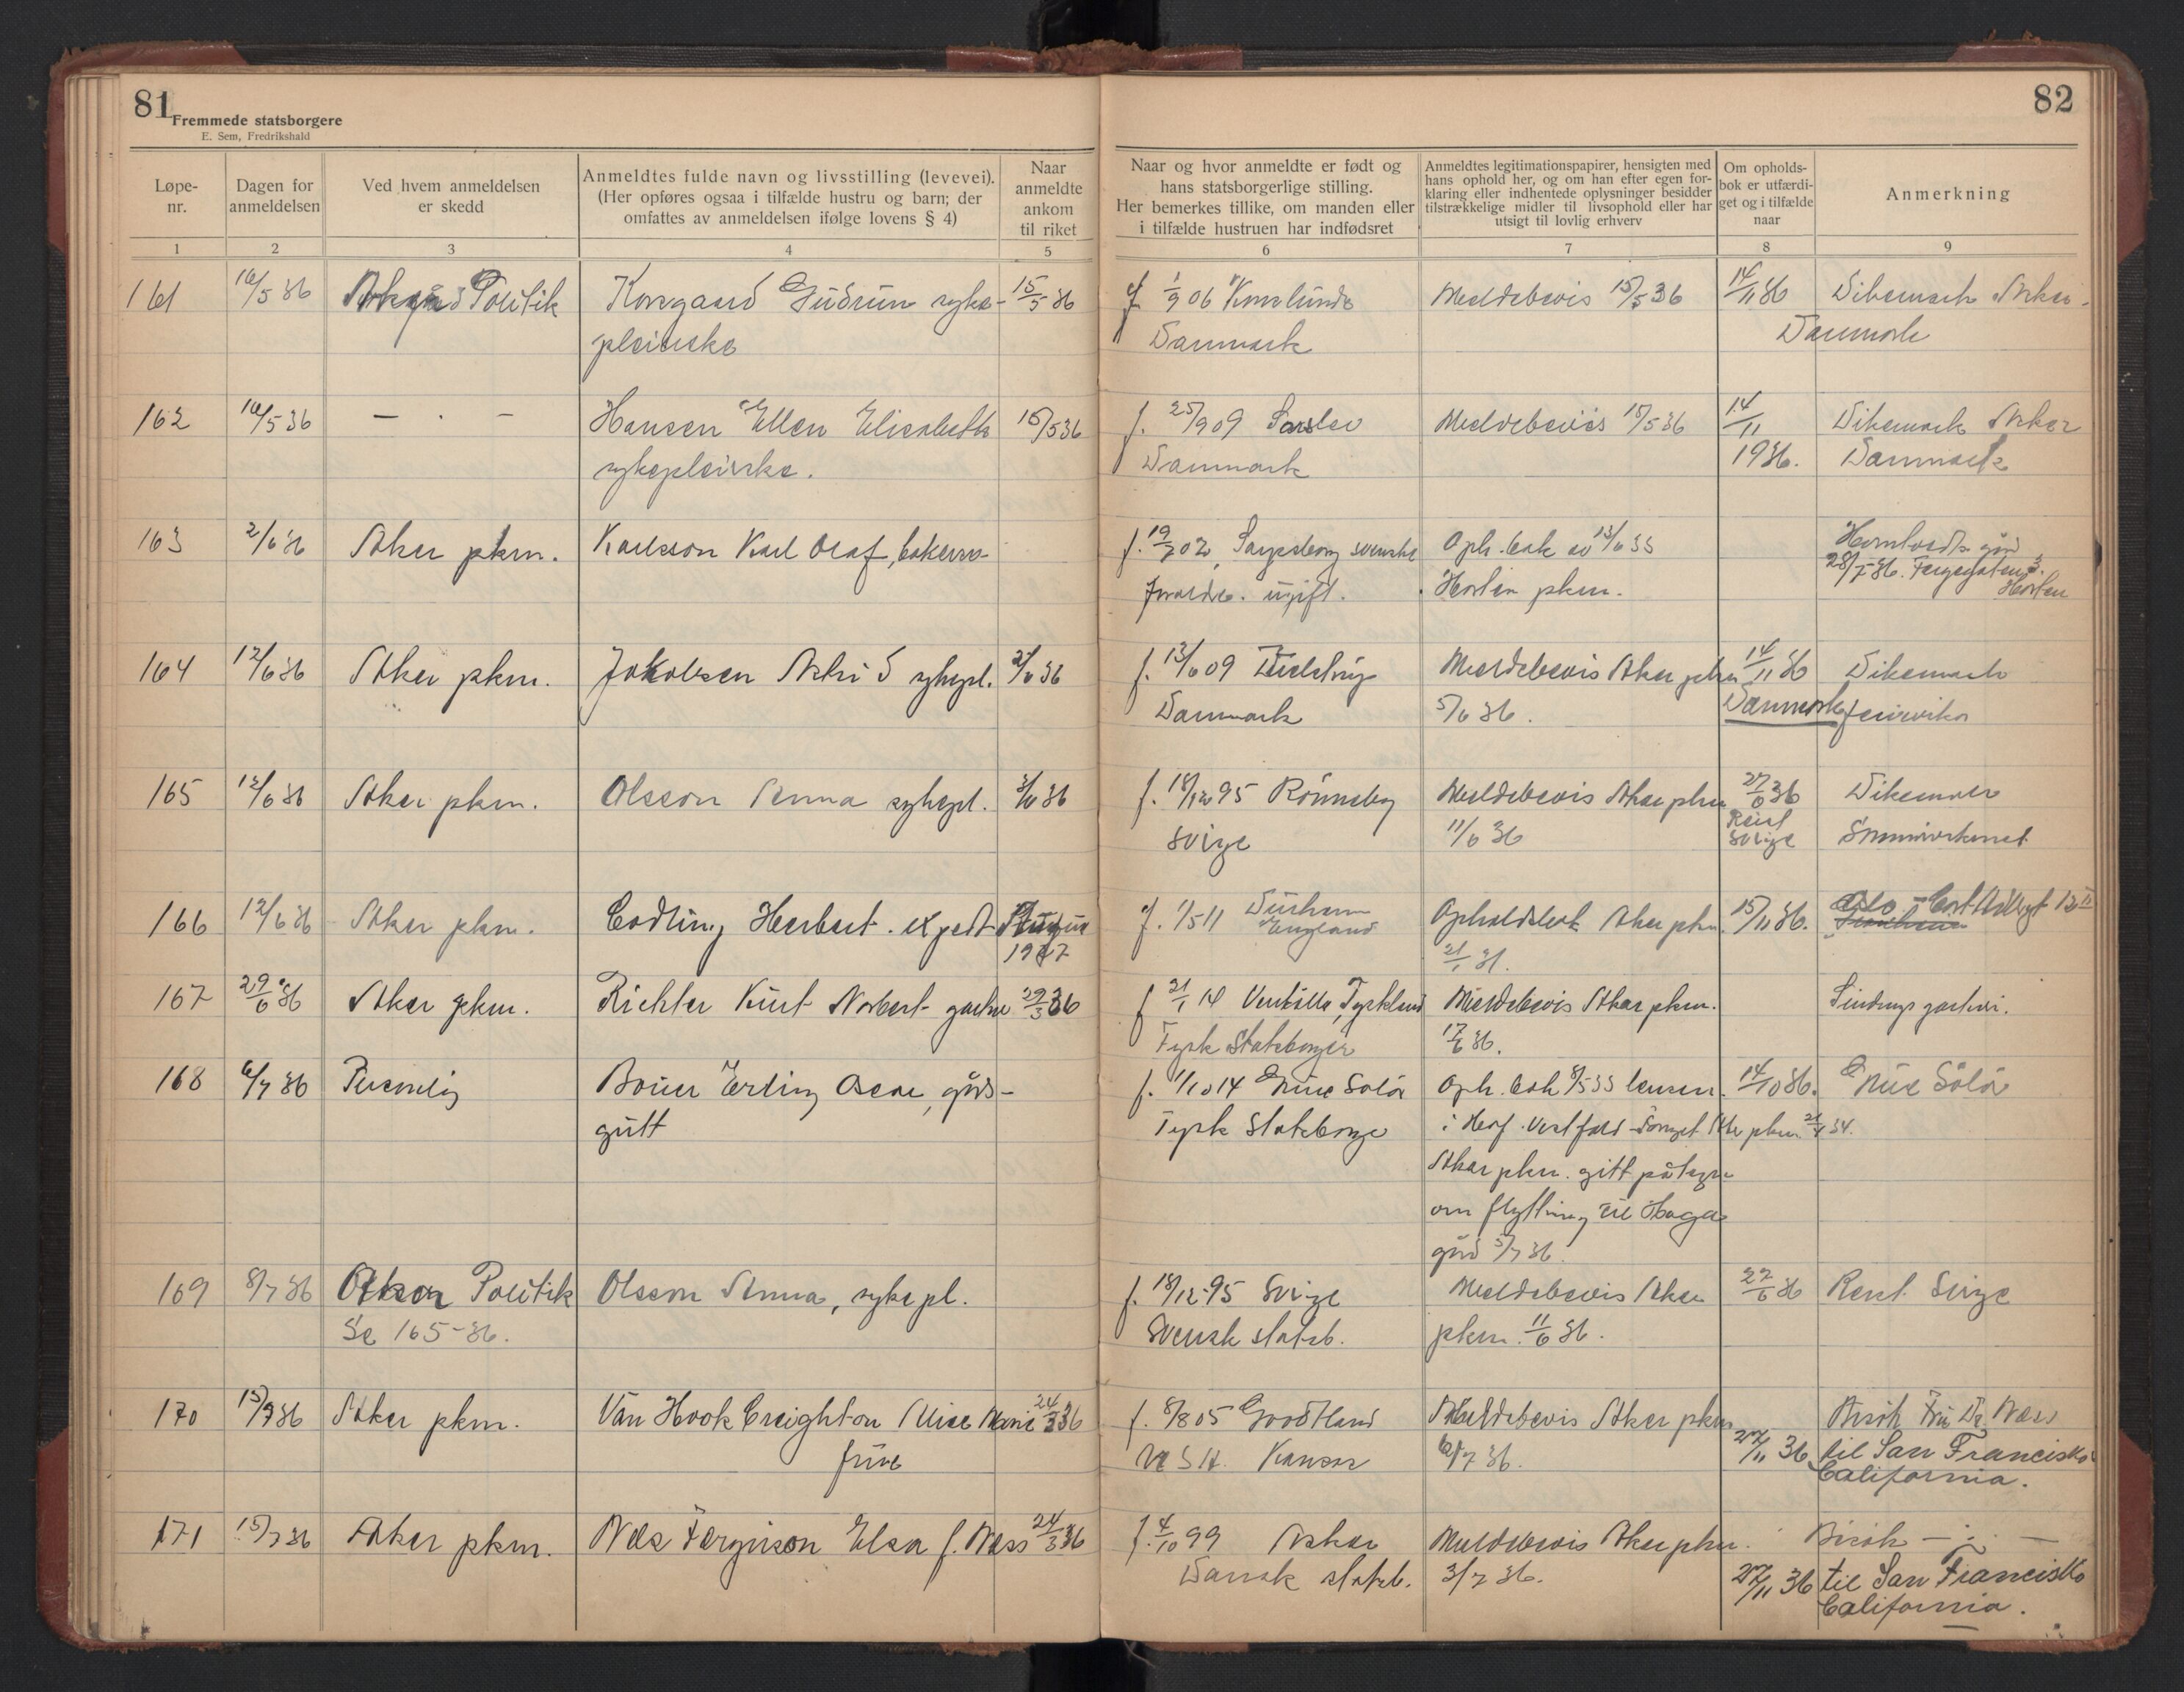 81
Fremmede statsborgere
E. Sem, Fredrikshald
Løpe-
nr.
Dagen for
anmeldelsen
Ved hvem anmeldelsen
er skedd
Anmeldtes fulde navn og livsstilling (levevei).
(Her opføres ogsaa i tilfælde hustru og barn; der
omfattes av anmeldelsen ifølge lovens § 4)
Naar
anmeldte
ankom
til riket
1 2 3 4 5
161 16/5 36 Politik Korsgaard Gudrun syke- 15/5 36
pleierske
162 16/5 36 — · — Hansen Ellen Elisabeth 15/5 36
sykepleierske.
163 2/6 36 Aker pkm. Karlsson Karl Olaf, bakersv.
164 12/6 36 Aker pkm. Jakobsen Astrid sykepl. 2/6 36
165 12/6 36 Aker pkm. Olsson Anna sykepl. 3/6 36
166 12/6 36 Aker pkm. Codling Herbert. exped.
1927
167 29/6 36 Aker pkm. Richter Kurt Norbert gartner 29/3 36
168 6/7 36 Personlig Erling Oscar, gårds-
gutt
169 8/7 36 Asker Politik Olsson Anna, sykepl.
Se 165-36.
170 15/7 36 Aker pkm. Van Hook Creighton Alice Marie 24/3 36
frue
171 15/7 36 Aker pkm. Ferguson Elsa f. Næss 24/3 36
82
Naar og hvor anmeldte er født og
hans statsborgerlige stilling.
Her bemerkes tillike, om manden eller
i tilfælde hustruen har indfødsret
Anmeldtes legitimationspapirer, hensigten med
hans ophold her, og om han efter egen for-
klaring eller indhentede oplysninger besidder
tilstrækkelige midler til livsophold eller har
utsigt til lovlig erhverv
Om opholds-
bok er utfærdi-
get og i tilfælde
naar
Anmerkning
6 7 8 9
f. 1/9 06 Meldebevis 15/5 36 14/11 36 Dikemark Asker.
Danmark Danmark
f. 25/9 09 Meldebevis 15/5 36 14/11 Dikemark Asker
Danmark 1936. Danmark
f. 19/7 02, Sarpsborg svenske Oph. bok av 13/6 35
foreldre. ugift. Horten pkm. 28/7-36. Fergegaten 3.
Horten
f. 13/6 09 Meldebevis Aker pkm 14/11 36 Dikemark
Danmark 5/6 36. Danmark
f. 18/12 95 Rönneby Meldebevis Aker pkm 27/6 36 Dikemark
Sverige 11/6 36 Reist
Sverige
f. 1/5 11 Durham Opholdsbok Aker pkm. 15/11 36. Oslo
England 21/1 31.
f. 21/1 14 Tyskland Meldebevis Aker pkm. gartneri.
Tysk Statsborger 17/6 36.
f. 1/10 14 Solør Oph. bok 8/5 35 14/10 36. Solør
Tysk Statsborger i Vestfold Aker pkm. 21/4 34.
Aker pkm. gitt påtegn
om flytting til Haga
gård 3/7 36.
f. 18/12-95 Sverige Meldebevis Aker 27/6 36 Reist Sverige
Svensk statsb. pkm. 11/6 36.
f. 8/8 05 Goodland Meldebevis Aker pkm Besök Fru Dr. Næss
U S A. Kansas 7 36. 27/11 36 til San Francisko
California.
f. 4/10 99 Asker Meldebevis Aker pkm. Besök — " —
Dansk statsb. 3/7 36. 27/11 36 til San Francisko
California.